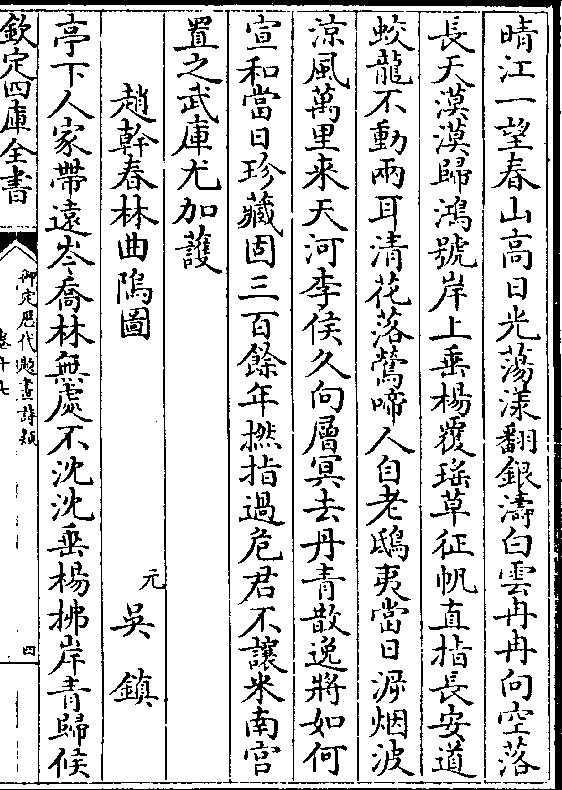 晴江一望春山高日光蕩漾翻銀濤白雲冉冉向空落
長天漠漠歸鴻號岸上垂楊覆瑶草征帆直指長安道
蛟龍不動兩耳清花落鶯啼人自老鴟夷當日泝烟波
涼風萬里來天河李侯久向層冥去丹青散逸將如何
宣和當日珍藏固三百餘年撚指過危君不讓米南宫
置之武庫尤加護
趙幹春林曲隖圖
元吳鎮
亭下人家帶遠岑喬林無處不沈沈垂楊拂岸青歸候
欽定四庫全書
御定歴代題畫詩類
四